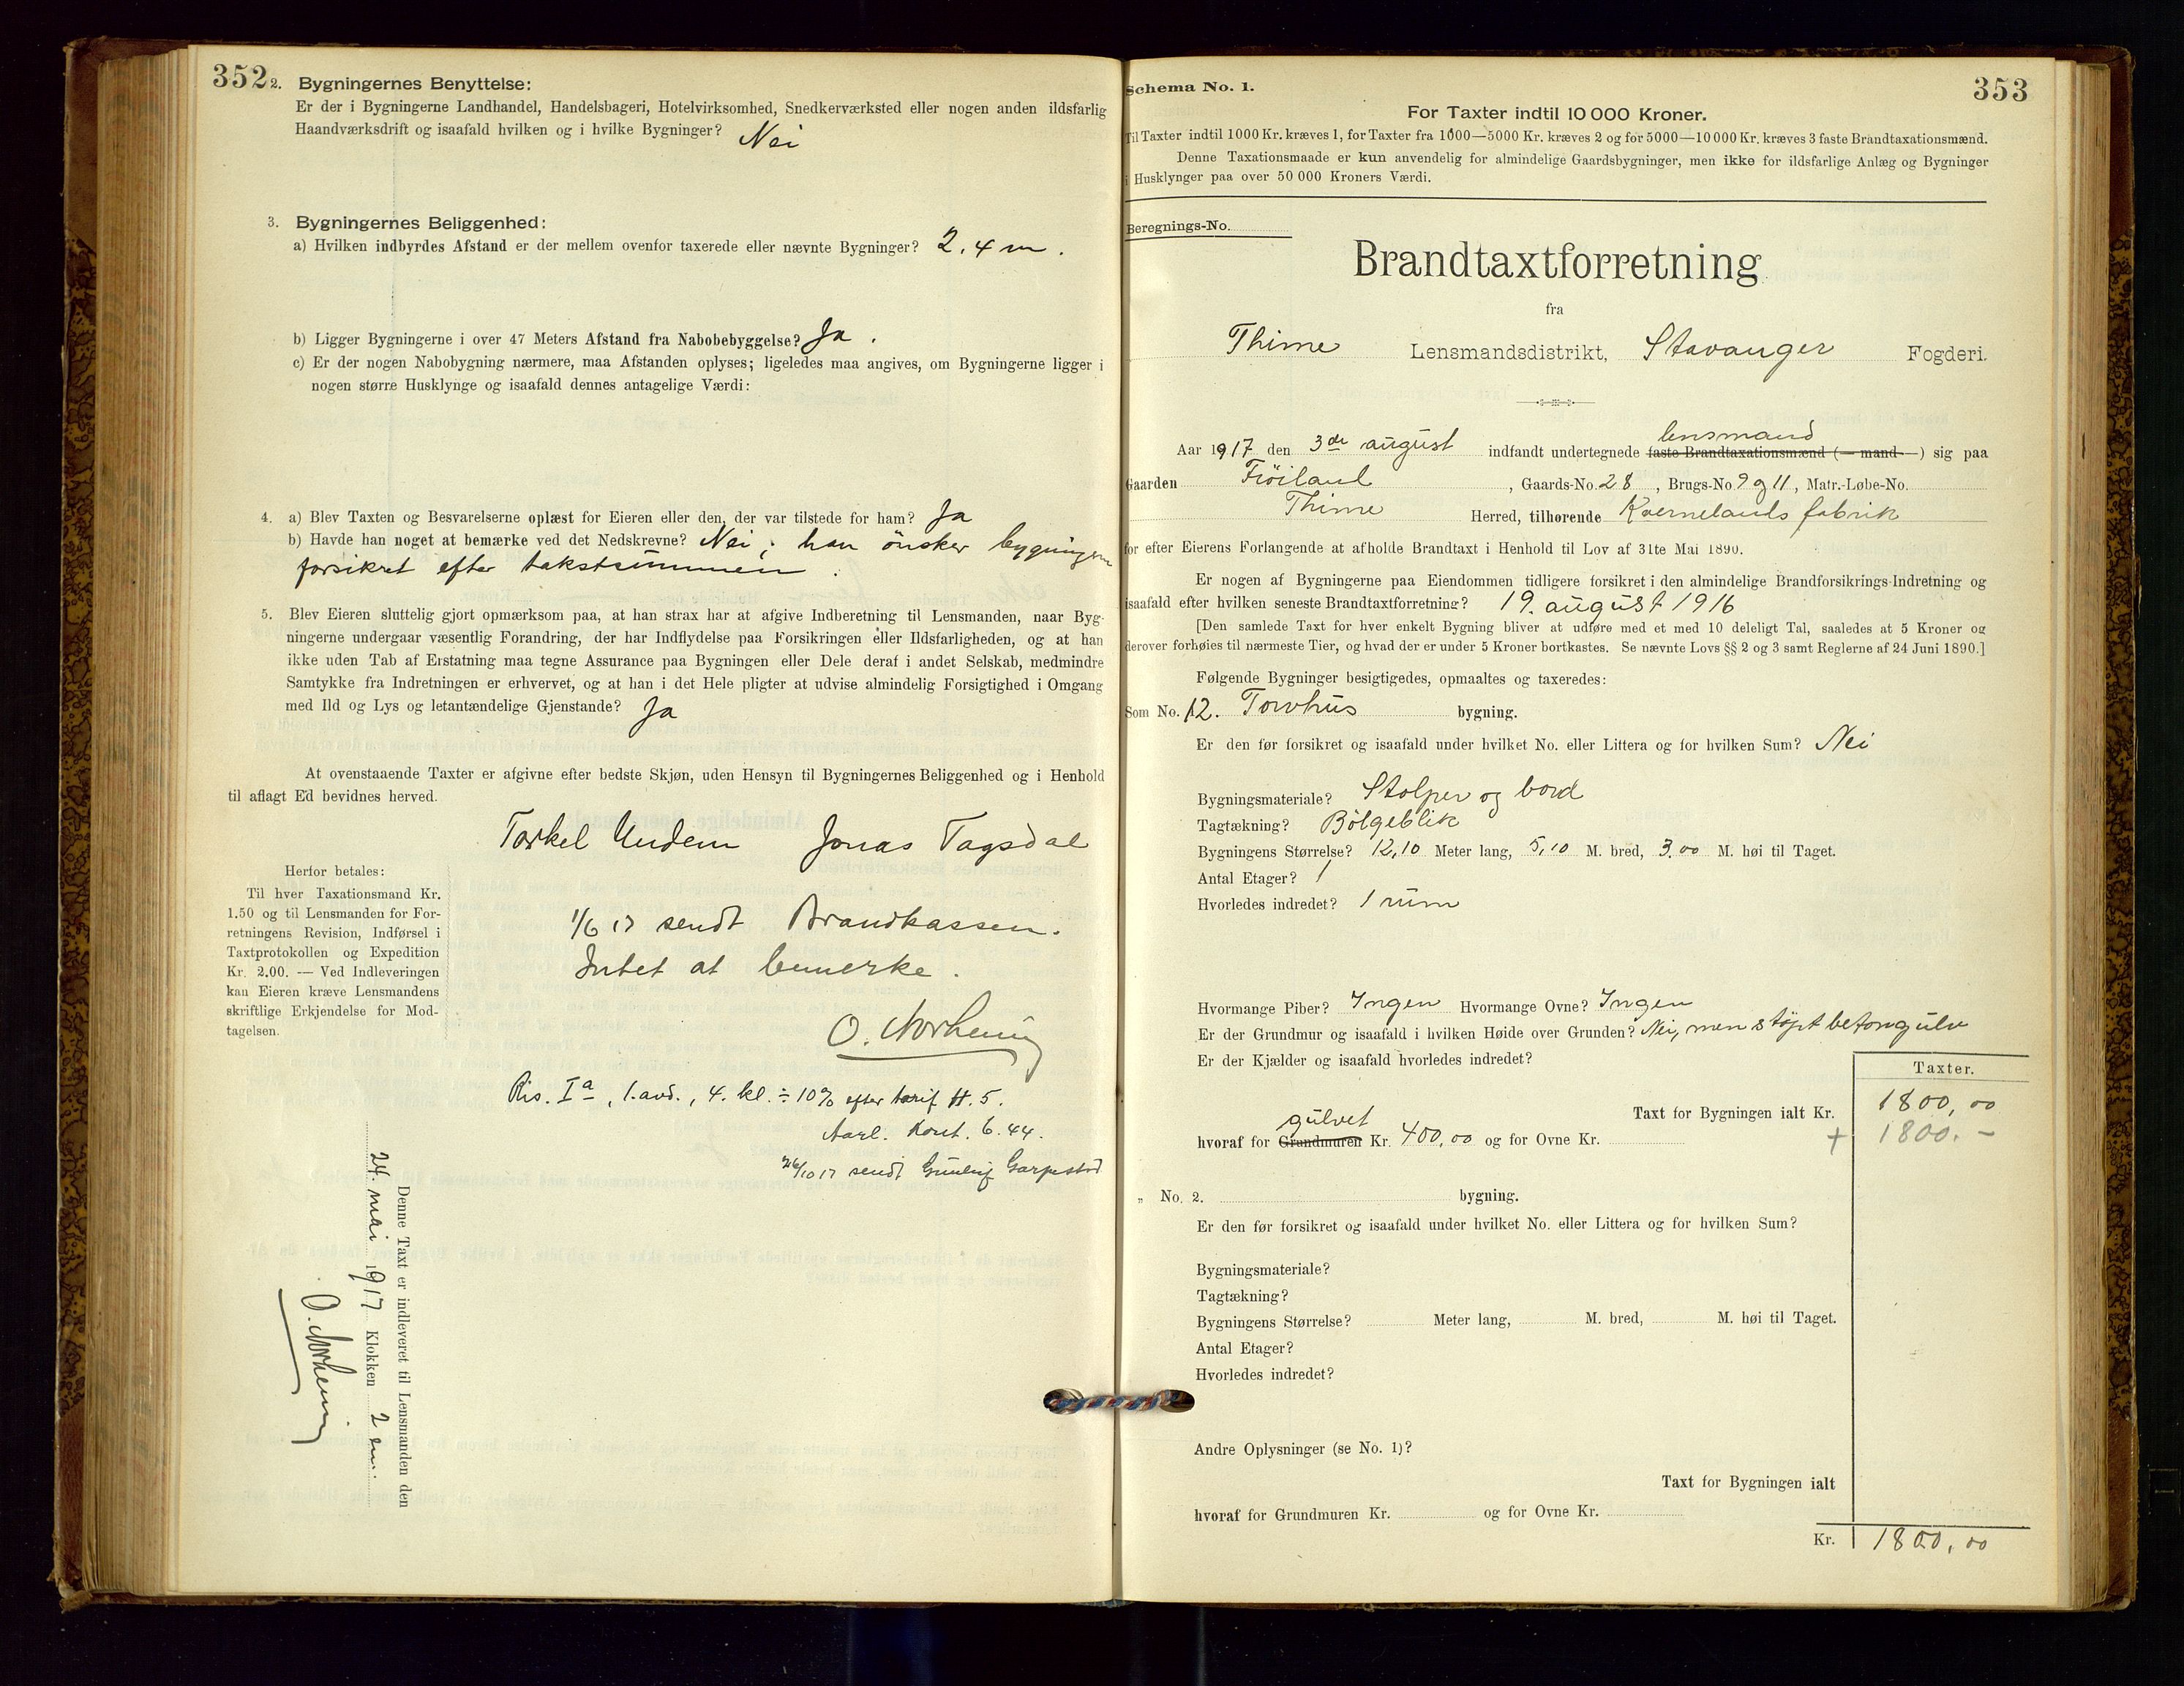 352
2. Bygningernes Benyttelse:
Er der i Bygningerne Landhandel, Handelsbageri, Hotelvirksomhed, Snedkerværksted eller nogen anden ildsfarlig
Haandværksdrift og isaafald hvilken og i hvilke Bygninger? Nei
3. Bygningernes Beliggenhed:
a) Hvilken indbyrdes Afstand er der mellem ovenfor taxerede eller nævnte Bygninger? 2,4 m.
b) Ligger Bygningerne i over 47 Meters Afstand fra Nabobebyggelse? Ja.
c) Er der nogen Nabobygning nærmere, maa Afstanden oplyses; ligeledes maa angives, om Bygningerne ligger i
nogen større Husklynge og isaafald dennes antagelige Værdi:
4. a) Blev Taxten og Besvarelserne oplæst for Eieren eller den, der var tilstede for ham? Ja
b) Havde han noget at bemærke ved det Nedskrevne? Nei; han ønsker bygningen
forsikret efter takstsummen.
5. Blev Eieren sluttelig gjort opmærksom paa, at han strax har at afgive Indberetning til Lensmanden, naar Byg-
ningerne undergaar væsentlig Forandring, der har Indflydelse paa Forsikringen eller Ildsfarligheden, og at han
ikke uden Tab af Erstatning maa tegne Assurance paa Bygningen eller Dele deraf i andet Selskab, medmindre
Samtykke fra Indretningen er erhvervet, og at han i det Hele pligter at udvise almindelig Forsigtighed i Omgang
med Ild og Lys og letantændelige Gjenstande? Ja
At ovenstaaende Taxter er afgivne efter bedste Skjøn, uden Hensyn til Bygningernes Beliggenhed og i Henhold
til aflagt Ed bevidnes herved.
Torkel Undem Jonas Tagsdal
Herfor betales:
Til hver Taxationsmand Kr.
1.50 og til Lensmanden for For-
retningens Revision, Indførsel i
Taxtprotokollen og Expedition
Kr. 2.00. — Ved Indleveringen
kan Eieren kræve Lensmandens
skriftlige Erkjendelse for Mod-
tagelsen.
1/6 17 sendt Brandkassen.
Intet at bemerke.
O. Norheim
Ris. Ia, 1. avd., 4. kl. ÷ 10% efter tarif H. 5.
Aarl. Kont. 6.44.
26/10 17 sendt Garpestad
Denne Taxt er indleveret til Lensmanden den
24. mai 1917 Klokken 2 em.
O. Norheim
353
Schema No. 1.
For Taxter indtil 10 000 Kroner.
Til Taxter indtil 1000 Kr. kræves 1, for Taxter fra 1000—5000 Kr. kræves 2 og for 5000—10 000 Kr. kræves 3 faste Brandtaxationsmænd.
Denne Taxationsmaade er kun anvendelig for almindelige Gaardsbygninger, men ikke for ildsfarlige Anlæg og Bygninger
i Husklynger paa over 50 000 Kroners Værdi.
Beregnings-No.
Brandtaxtforretning
fra
Thime Lensmandsdistrikt, Stavanger Fogderi.
lensmand
Aar 1917 den 3de august indfandt undertegnede faste Brandtaxationsmænd (— mand —) sig paa
Gaarden Frøiland, Gaards-No. 28, Brugs-No. 9 og 11, Matr.-Løbe-No.
Thime Herred, tilhørende Kvernelands fabrik
for efter Eierens Forlangende at afholde Brandtaxt i Henhold til Lov af 31te Mai 1890.
Er nogen af Bygningerne paa Eiendommen tidligere forsikret i den almindelige Brandforsikrings-Indretning og
isaafald efter hvilken seneste Brandtaxtforretning? 19. august 1916
[Den samlede Taxt for hver enkelt Bygning bliver at udføre med et med 10 deleligt Tal, saaledes at 5 Kroner og
derover forhøies til nærmeste Tier, og hvad der er under 5 Kroner bortkastes. Se nævnte Lovs §§ 2 og 3 samt Reglerne af 24 Juni 1890.]
Følgende Bygninger besigtigedes, opmaaltes og taxeredes:
Som No. 12. Torvhus bygning.
Er den før forsikret og isaafald under hvilket No. eller Littera og for hvilken Sum? Nei
Bygningsmateriale? Stolper og bord
Tagtækning? Bølgeblik
Bygningens Størrelse? 12,10 Meter lang, 5,10 M. bred, 3,00 M. høi til Taget.
Antal Etager? 1
Hvorledes indredet? 1 rum
Hvormange Piber? Ingen Hvormange Ovne? Ingen
Er der Grundmur og isaafald i hvilken Høide over Grunden? Nei, men støpt betongulv
Er der Kjælder og isaafald hvorledes indredet?
Taxter.
Taxt for Bygningen ialt Kr. 1800,00
gulvet
hvoraf for Grundmuren Kr. 400,00 og for Ovne Kr. + 1800.-
„ No. 2. bygning.
Er den før forsikret og isaafald under hvilket No. eller Littera og for hvilken Sum?
Bygningsmateriale?
Tagtækning?
Bygningens Størrelse? Meter lang, M. bred, M. høi til Taget.
Antal Etager?
Hvorledes indredet?
Andre Oplysninger (se No. 1)?
Taxt for Bygningen ialt
hvoraf for Grundmuren Kr. og for Ovne Kr.
Kr. 1800,00